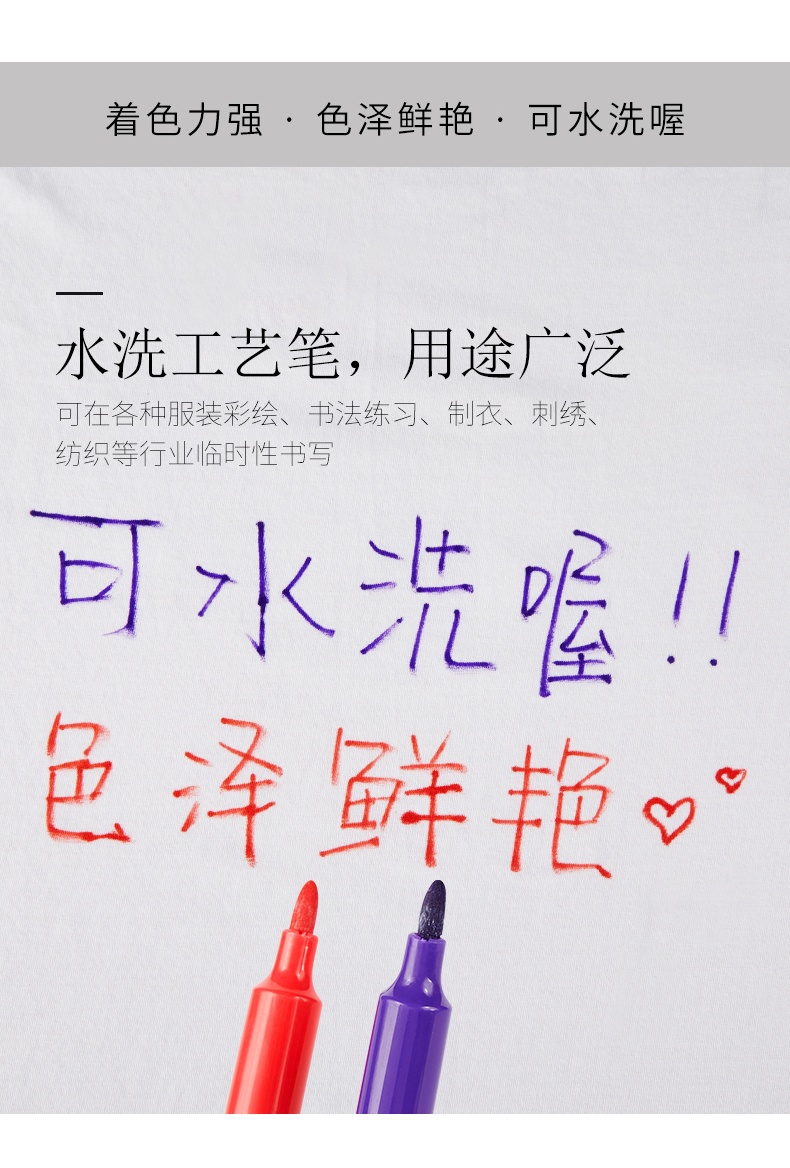 着色力强 · 色泽鲜艳 · 可水洗喔
水洗工艺笔，用途广泛
可在各种服装彩绘、书法练习、制衣、刺绣、
纺织等行业临时性书写
可水洗喔!!
色泽鲜艳